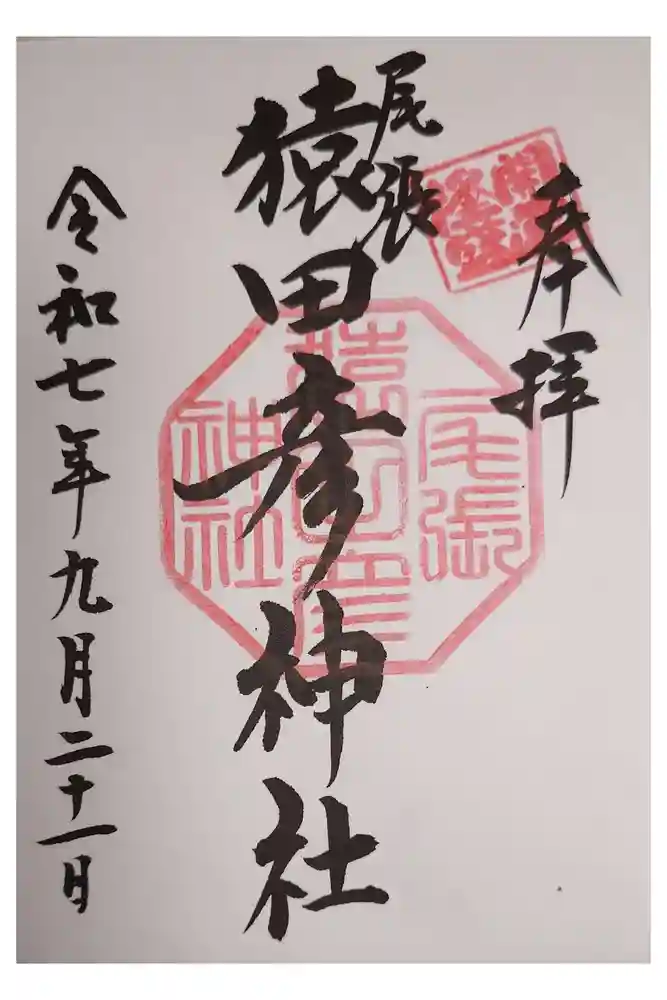 奉拝
尾張
猿田彦神社
尾張
猿田彦
神社
令和七年九月二十一日